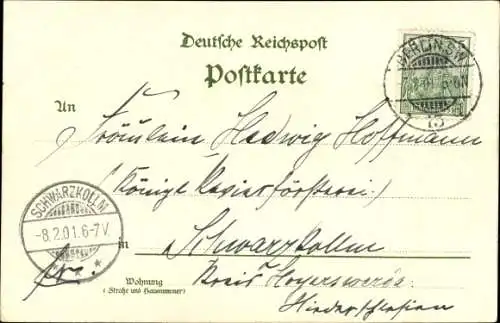 Deutsche Reichspost
Postkarte
BERLIN S.W.
.2.01. 5-6N
13
An
Fräulein Hedwig Hoffmann
(Königl. Revierförsterei)
SCHWARZKOLLM
-8.2.01.6-7V.
in Schwarzkollm
Kreis Hoyerswerda
Wohnung
(Straße und Hausnummer)
Niederschlesien